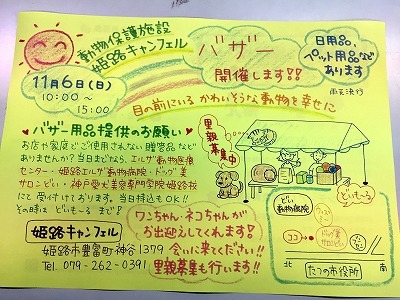 動物保護施設
姫路キャンフェル
バザー
開催します!!
日用品、
ペット用品など
あります
雨天決行
11月6日(日)
10:00～
15:00
目の前にいる かわいそうな動物を幸せに
♥バザー用品提供のお願い♥
お店や家庭でご使用されない贈答品など
ありませんか?当日までなら、エルザ動物医療
センター・姫路エルザ動物病院・ドッグ美
サロンどい・神戸愛犬美容専門学院姫路校
にて受付けております。当日持込もOK!!
その時は どいもーるまで!
里親募集中
ワンちゃん・ネコちゃんが
お出迎えしてくれます!
会いに来てください!!
里親募集も行います!!
姫路キャンフェル
姫路市豊富町神谷1379
Tel. 079-262-0391
どい
動物病院
どいもーる
ココ→
北
南
たつの市役所